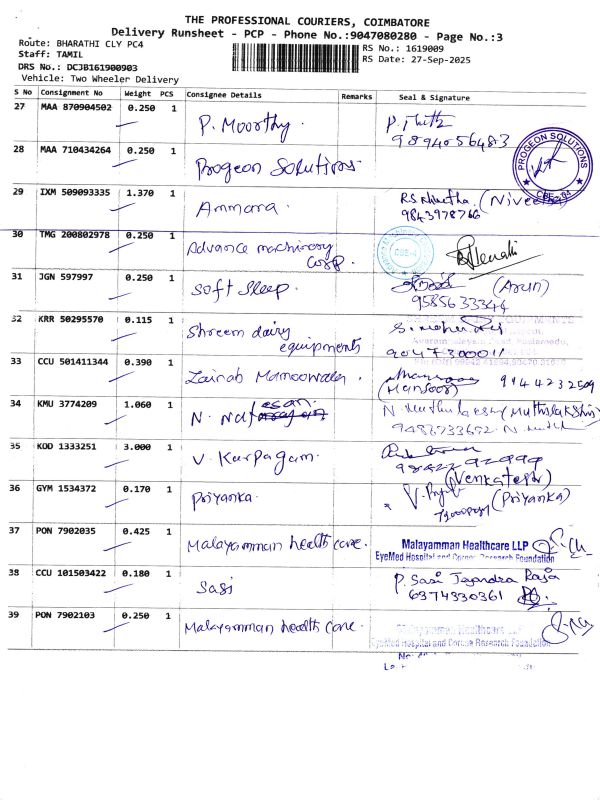 THE PROFESSIONAL COURIERS, COIMBATORE
Delivery Runsheet - PCP - Phone No.:9047080280 - Page No.:3
Route: BHARATHI CLY PC4
Staff: TAMIL
DRS No.: DCJB161900903
Vehicle: Two Wheeler Delivery
RS No.: 1619009
RS Date: 27-Sep-2025
S No Consignment No Weight PCS Consignee Details Remarks Seal & Signature
27 MAA 870904502 0.250 1 P. Moorthy. 
9894056483
28 MAA 710434264 0.250 1 Progeon Solutions
PROGEON SOLUTIONS
29 IXM 509093335 1.370 1 Ammara.
9843978766
30 TMG 200802978 0.250 1 Advance machinery
corp.
31 JGN 597997 0.250 1 Soft Sleep. (Arun)
9585633344
32 KRR 50295570 0.115 1 Shreem dairy
equipments
9047300011
33 CCU 501411344 0.390 1 Zainab Mamoowala.
(Mansoor) 9144232509
34 KMU 3774209 1.060 1 N. Natesan.
35 KOD 1333251 3.000 1 V. Karpagam.
(Venkatesh)
36 GYM 1534372 0.170 1 Priyanka. (Priyanka)
37 PON 7902035 0.425 1 Malayamman health care. Malayamman Healthcare LLP
EyeMed Hospital and Cornea Research Foundation
38 CCU 101503422 0.180 1 Sasi P. Sasi Jagandra Raja
6374330361
39 PON 7902103 0.250 1 Malayamman health care. Malayamman Healthcare LLP
EyeMed Hospital and Cornea Research Foundation